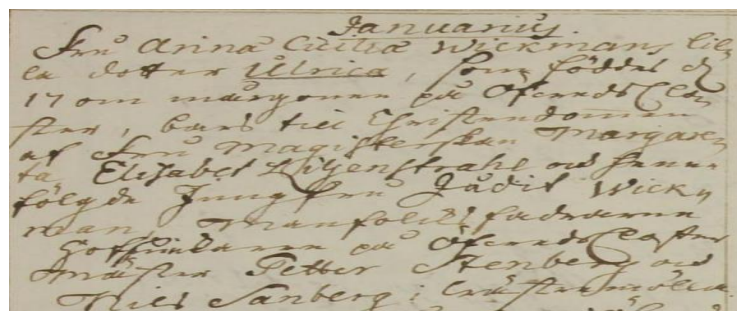 Januarius.
Fru Anna Cecilia Wickmans lil-
la dotter Ulrica, som föddes d
17 om morgonen på Öfveds Clo-
ster, bars till Christendomen
af Fru Magisterskan Margare-
ta Elisabet Liljenstrahl och henne
fölgde Jungfru Judit Wick-
man, Manfolks faddrarne
på Öfveds Closter
Mäster Petter Stenberg och
Nils Sanberg i